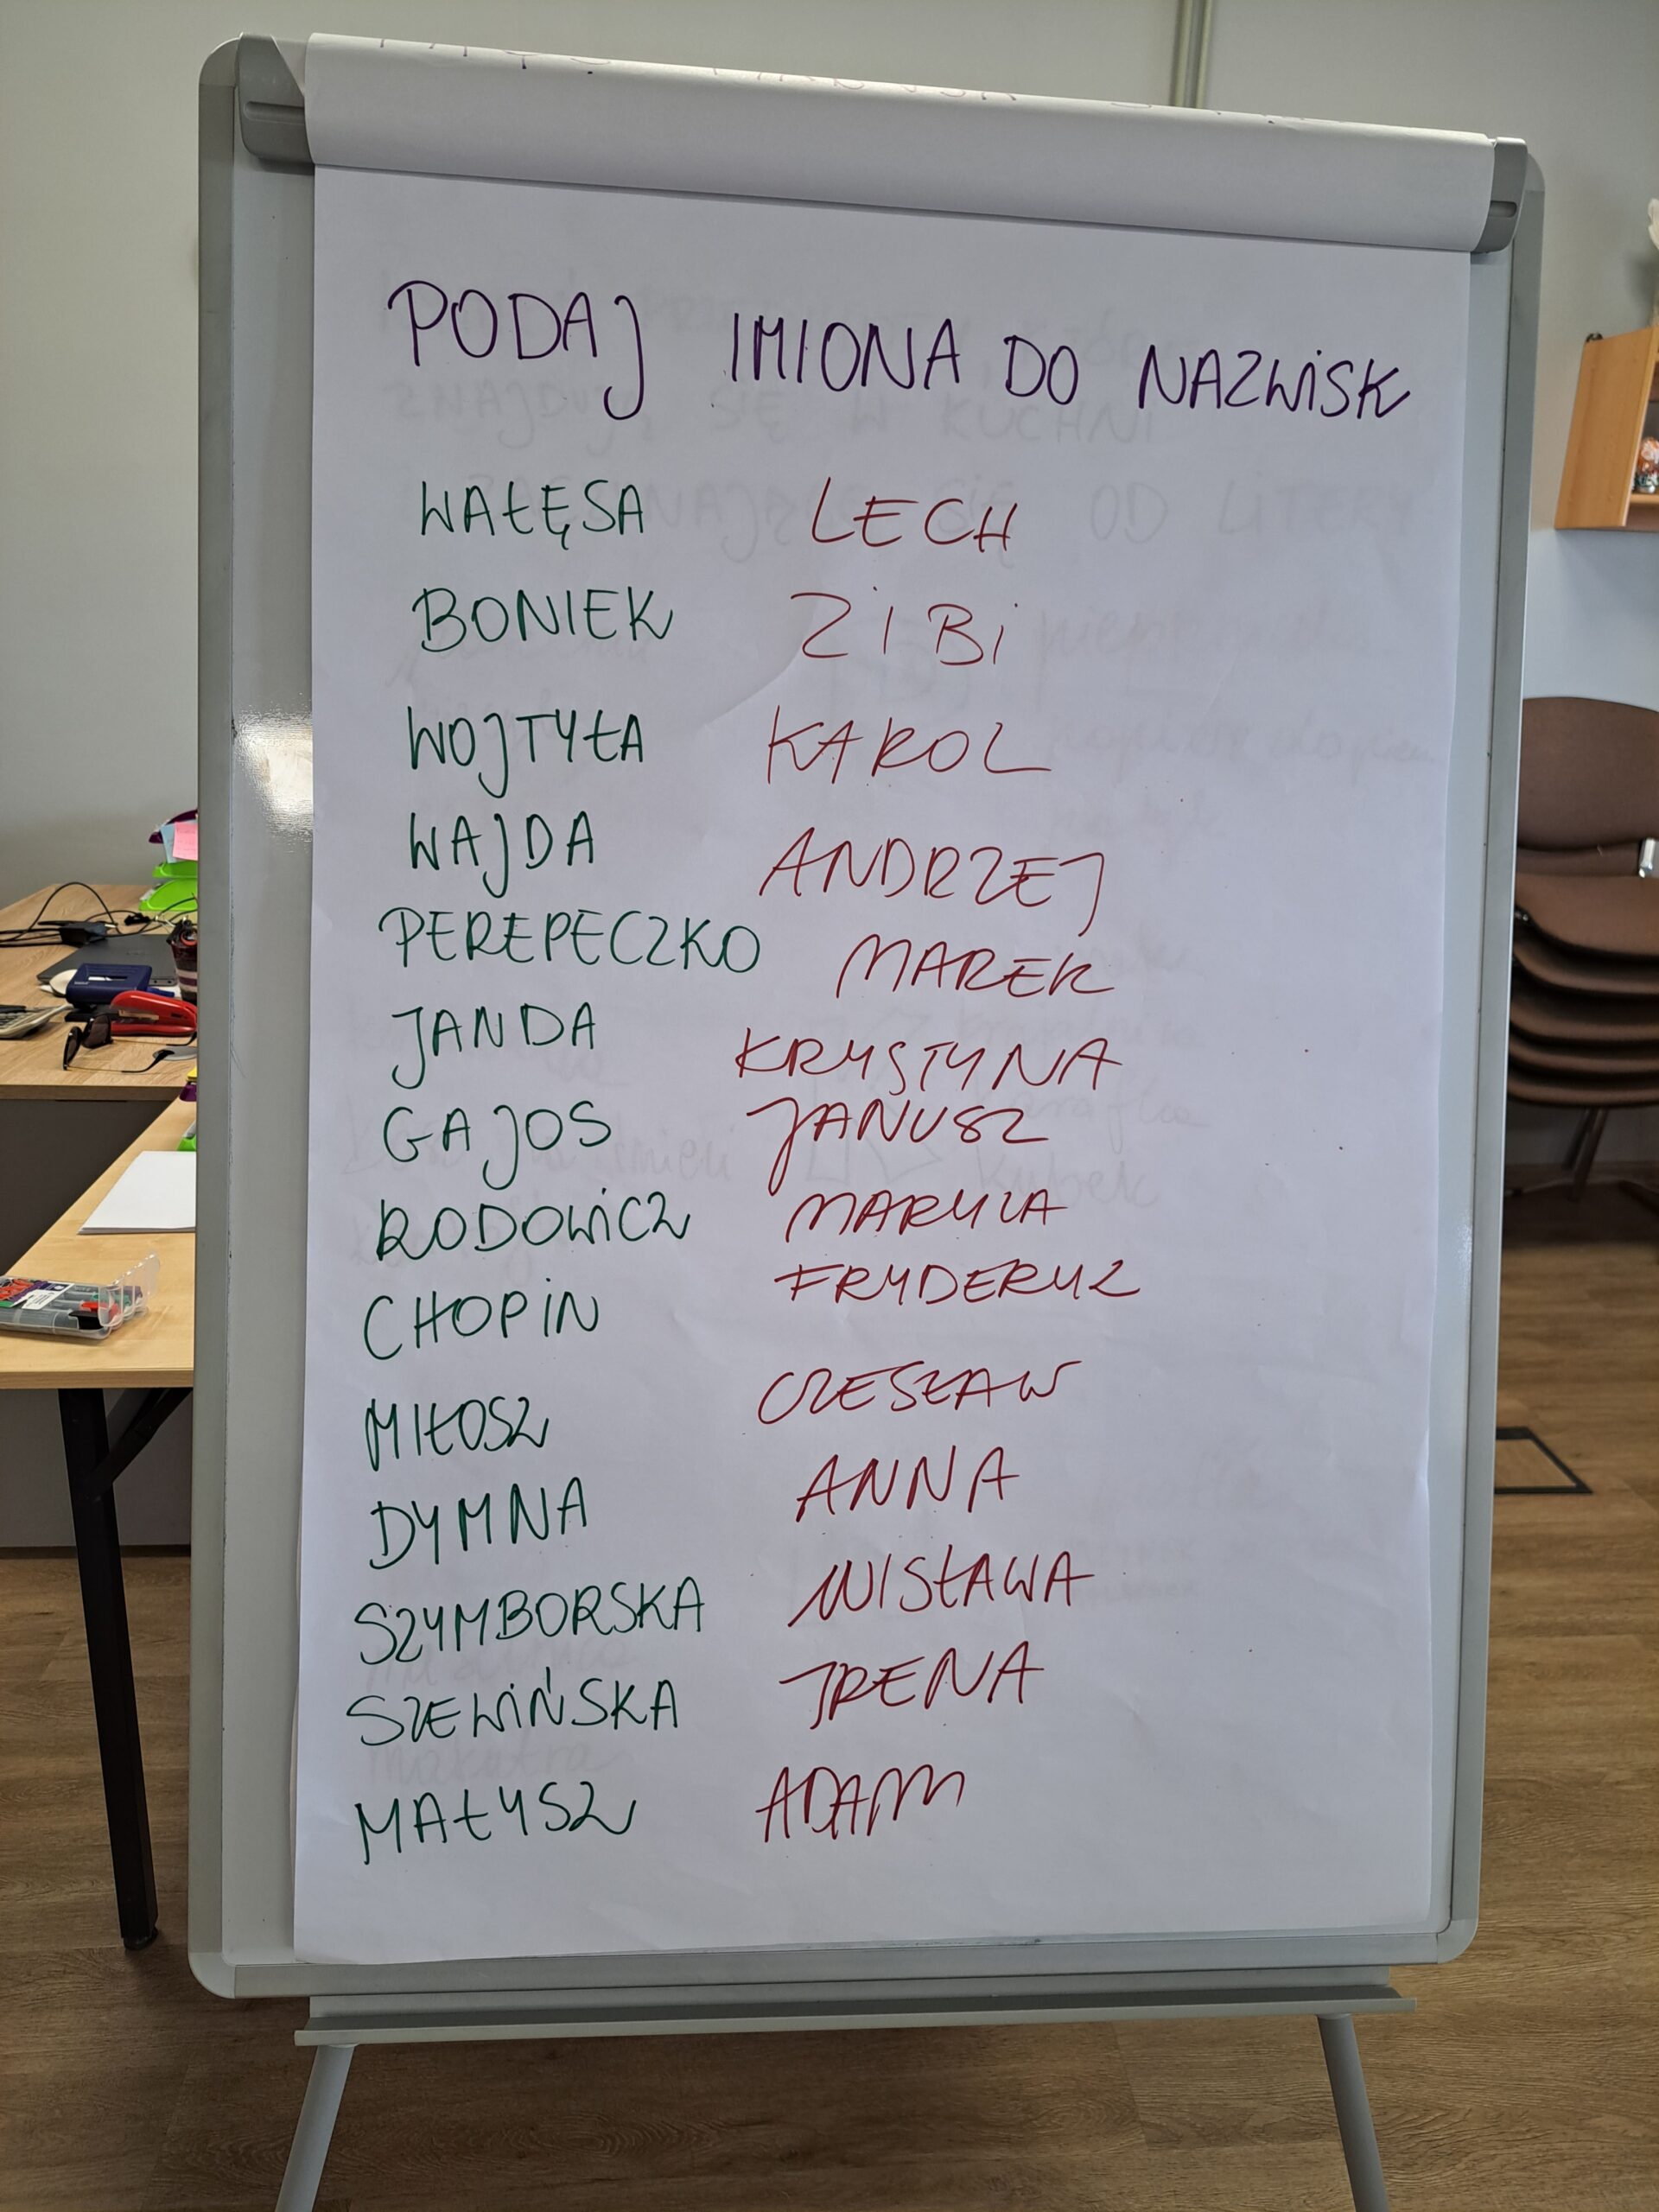 PODAJ IMIONA DO NAZWISK
WAŁĘSA LECH
BONIEK ZIBI
WOJTYŁA KAROL
WAJDA ANDRZEJ
PEREPECZKO MAREK
JANDA KRYSTYNA
GAJOS JANUSZ
RODOWICZ MARYLA
CHOPIN FRYDERYK
MIŁOSZ CZESŁAW
DYMNA ANNA
SZYMBORSKA WISŁAWA
SZEWIŃSKA IRENA
MAŁYSZ ADAM